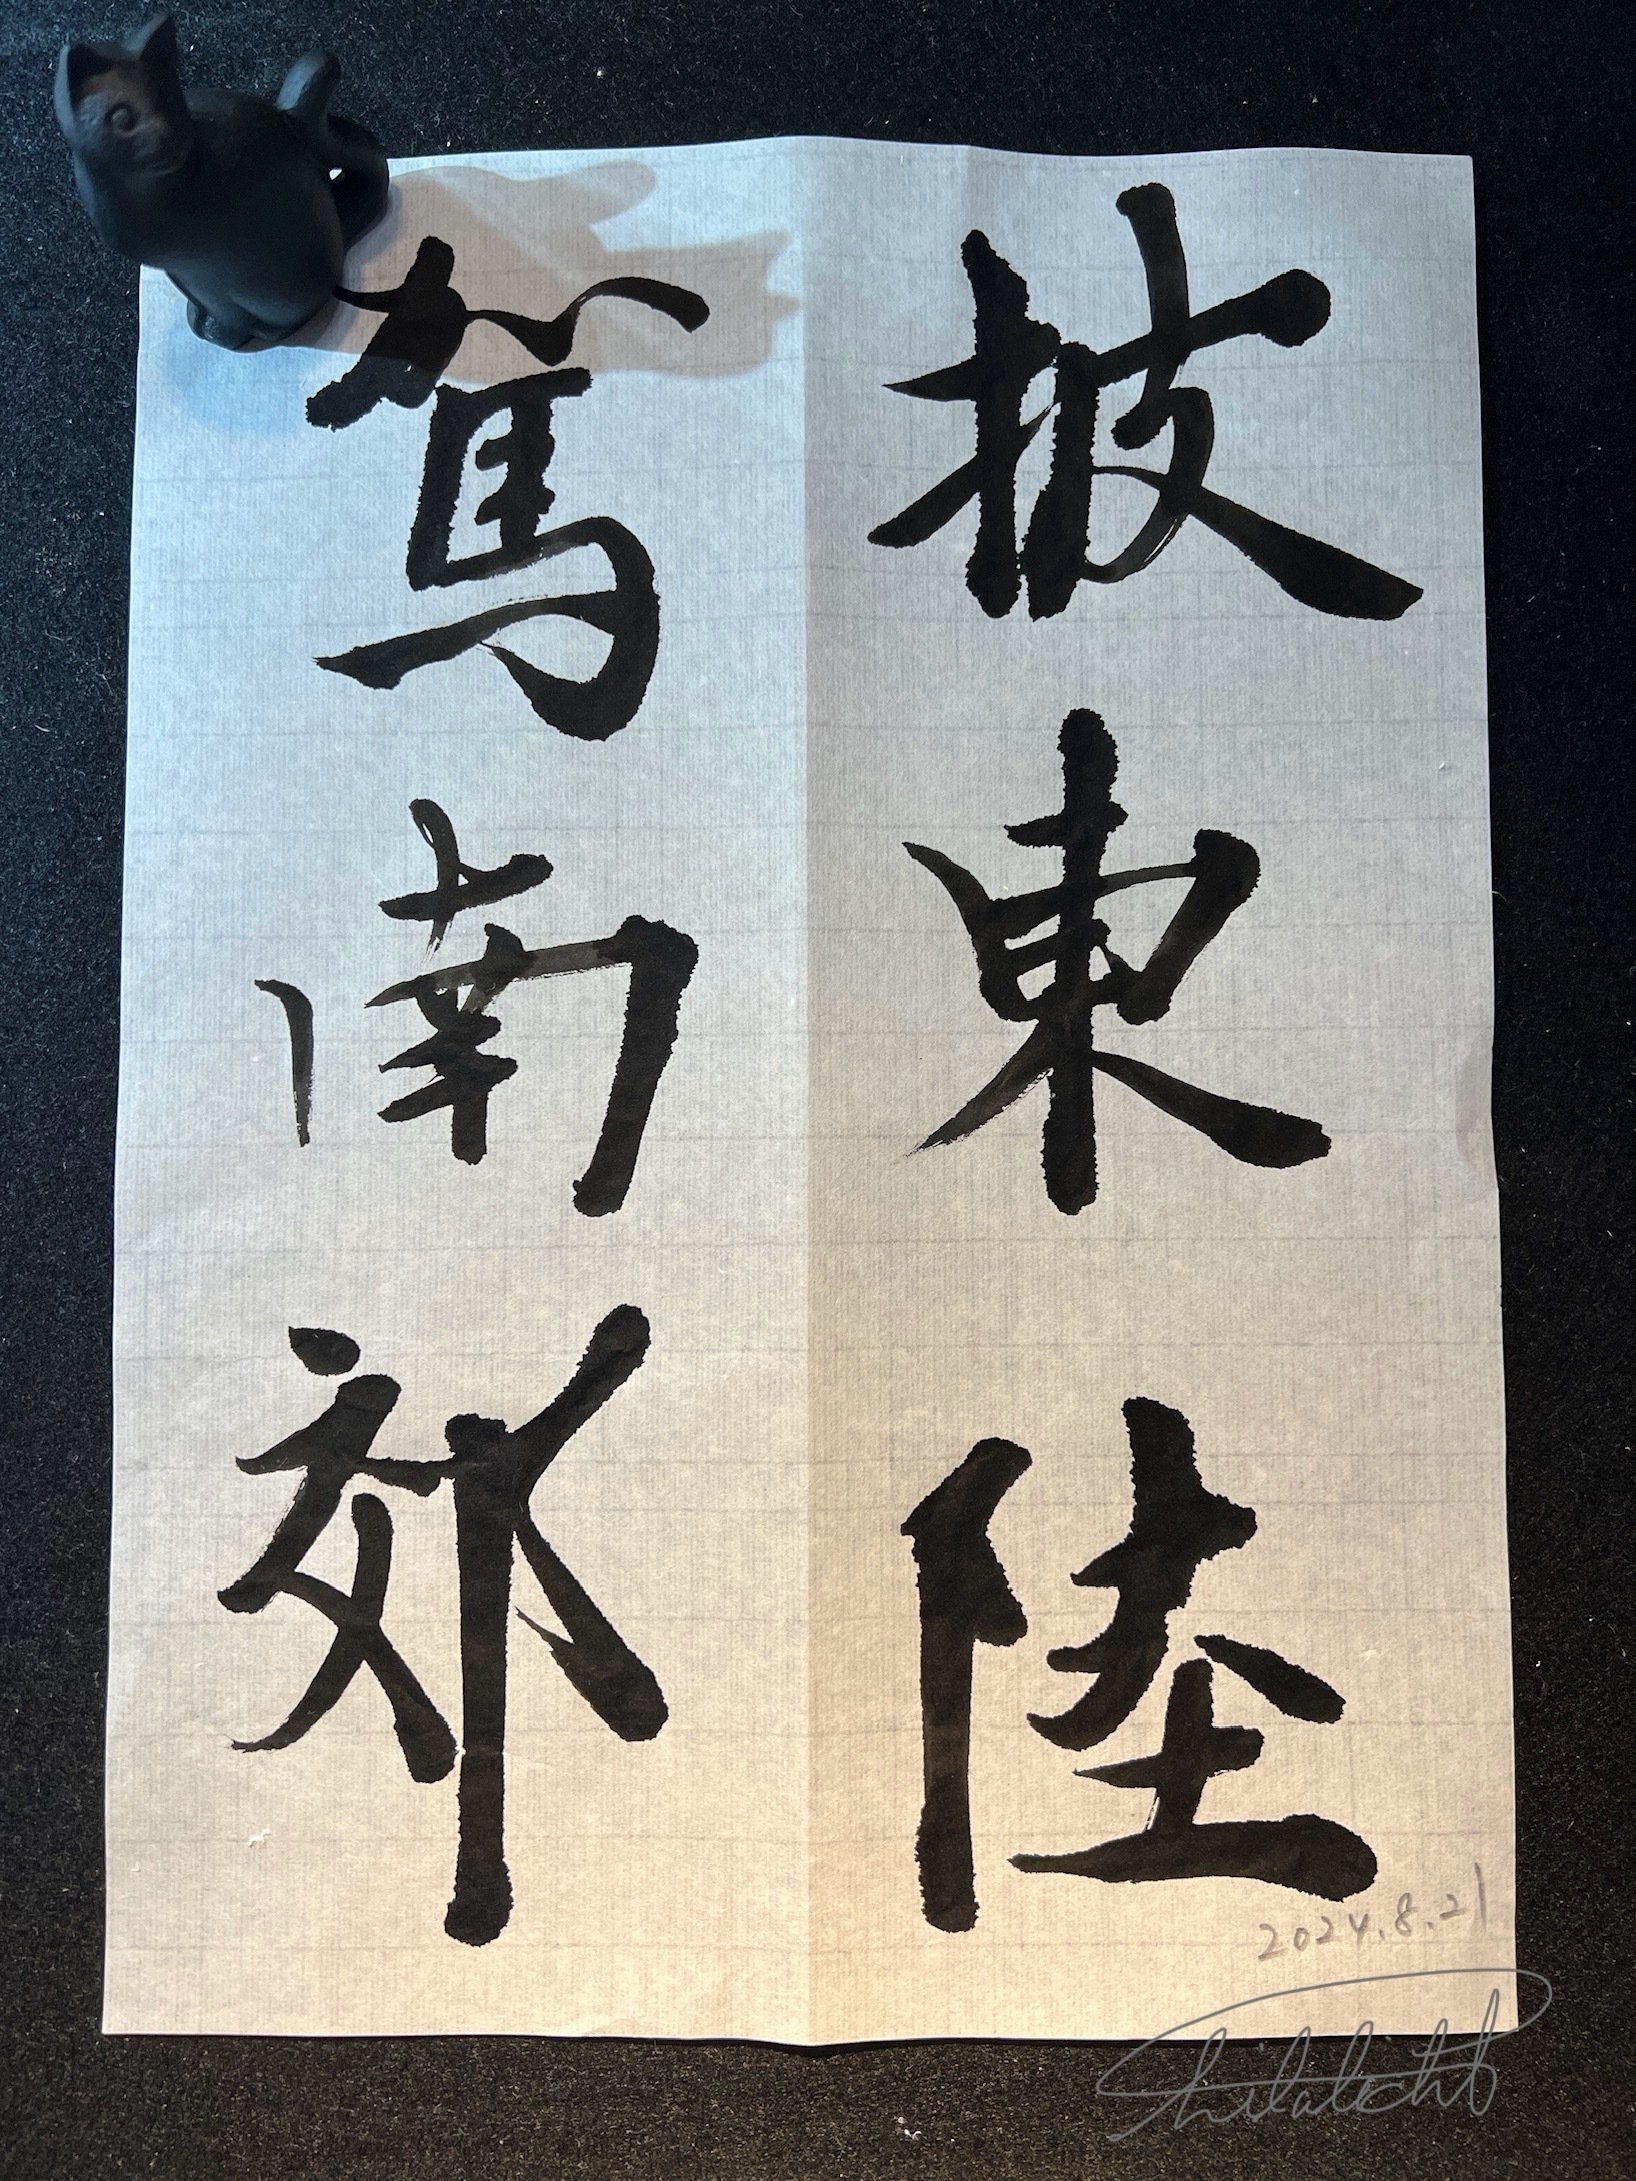 披東陸
駕南郊
2024.8.21